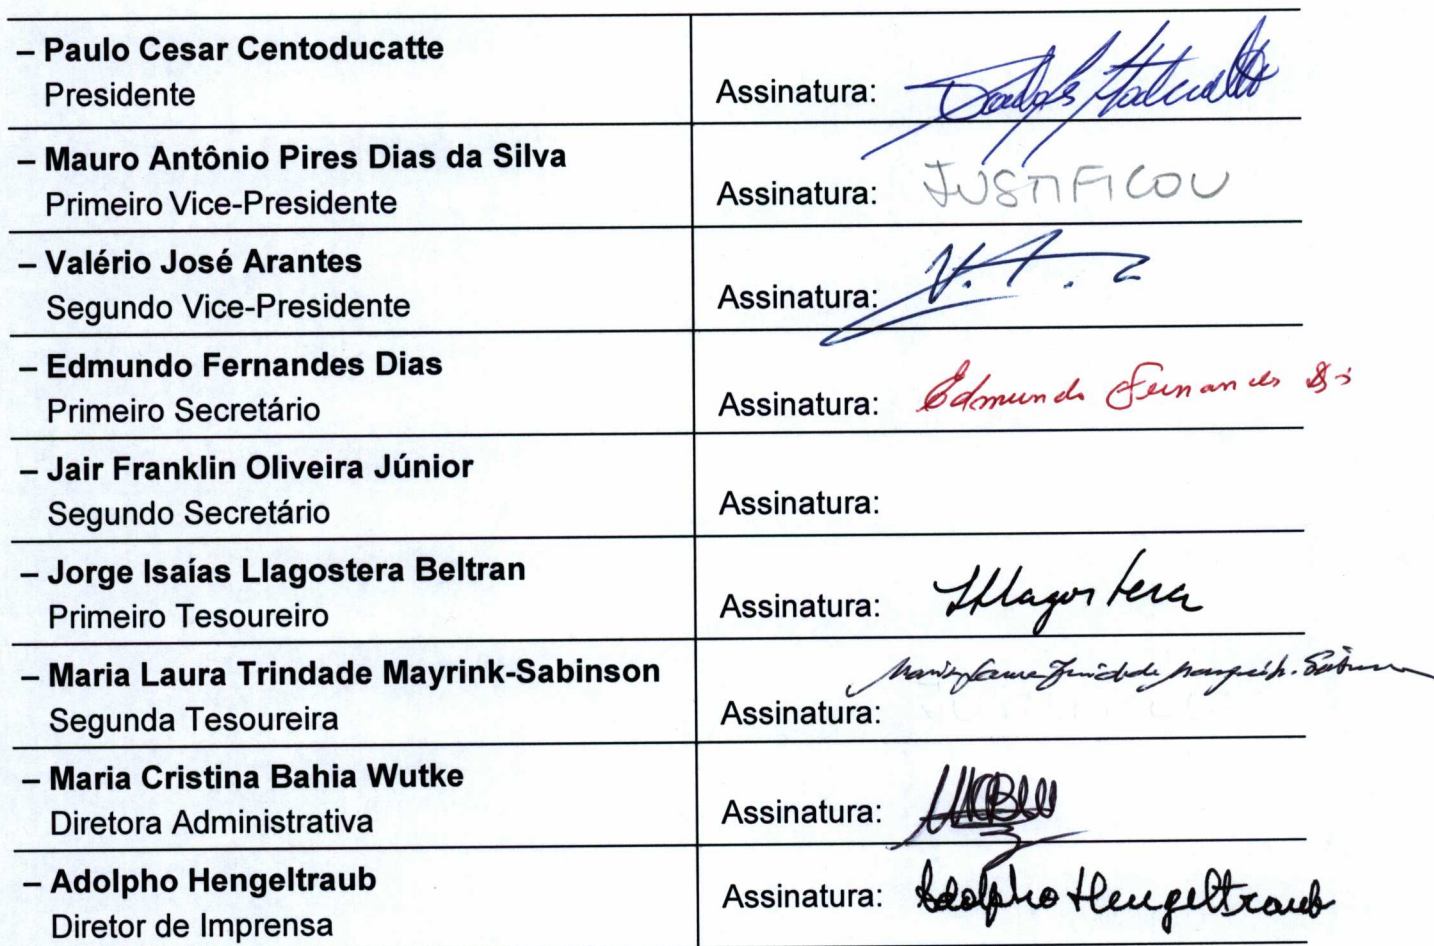 – Paulo Cesar Centoducatte
Presidente
Assinatura:
– Mauro Antônio Pires Dias da Silva
Primeiro Vice-Presidente
Assinatura: JUSTIFICOU
– Valério José Arantes
Segundo Vice-Presidente
Assinatura: V. A.
– Edmundo Fernandes Dias
Primeiro Secretário
Assinatura: Edmundo Fernandes Dias
– Jair Franklin Oliveira Júnior
Segundo Secretário
Assinatura:
– Jorge Isaías Llagostera Beltran
Primeiro Tesoureiro
Assinatura: Llagostera
– Maria Laura Trindade Mayrink-Sabinson
Segunda Tesoureira
Assinatura: Maria Laura Trindade Mayrink-Sabinson
– Maria Cristina Bahia Wutke
Diretora Administrativa
Assinatura: MCBW
– Adolpho Hengeltraub
Diretor de Imprensa
Assinatura: Adolpho Hengeltraub